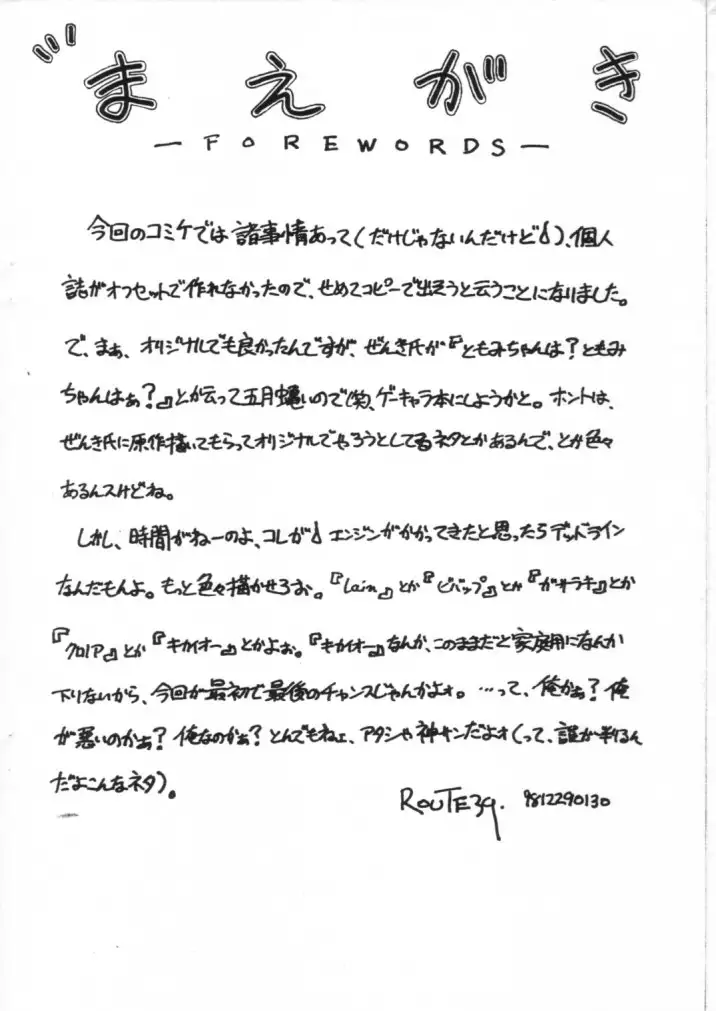 まえがき
— FOREWORDS —
今回のコミケでは諸事情あって(だけじゃないんだけど)、個人
誌がオフセットで作れなかったので、せめてコピーで出そうと云うことになりました。
で、まぁ、オリジナルでも良かったんですが、ぜんき氏が『ともみちゃんは?ともみ
ちゃんはぁ?』とか云って五月蝿いので(笑)、ゲーキャラ本にしようかと。ホントは、
ぜんき氏に原作描いてもらってオリジナルでやろうとしてるネタとかあるんで、とか色々
あるんスけどね。
しかし、時間がねーのよ、コレが エンジンがかかってきたと思ったらデッドライン
なんだもんよ。もっと色々描かせろぉ。『lain』とか『ビバップ』とか『ガサラキ』とか
『クロノア』とか『キカイオー』とかよぉ。『キカイオー』なんか、このままだと家庭用になんか
下りないから、今回が最初で最後のチャンスじゃんかよォ。…って、俺かぁ?俺
が悪いのかぁ?俺なのかぁ?とんでもねェ、アタシャ神サンだよォ(って、誰が判るん
だよこんなネタ)。
ROUTE39. 9812290130